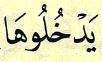 يَدْخُلُوهَا